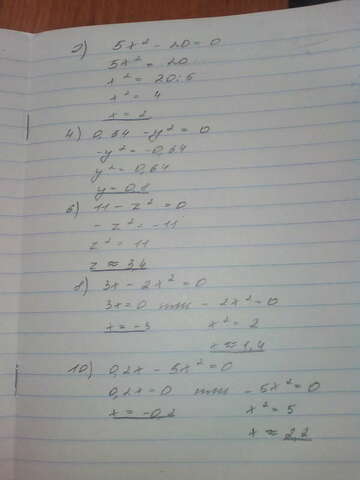 2) 5x² - 20 = 0
5x² = 20
x² = 20:5
x² = 4
x = 2
4) 0,64 - y² = 0
-y² = -0,64
y² = 0,64
y = 0,8
6) 11 - z² = 0
- z² = -11
z² = 11
z ≈ 3,4
8) 3x - 2x² = 0
3x = 0 или - 2x² = 0
x = -3 x² = 2
x ≈ 1,4
10) 0,2x - 5x² = 0
0,2x = 0 или - 5x² = 0
x = -0,2 x² = 5
x ≈ 2,2